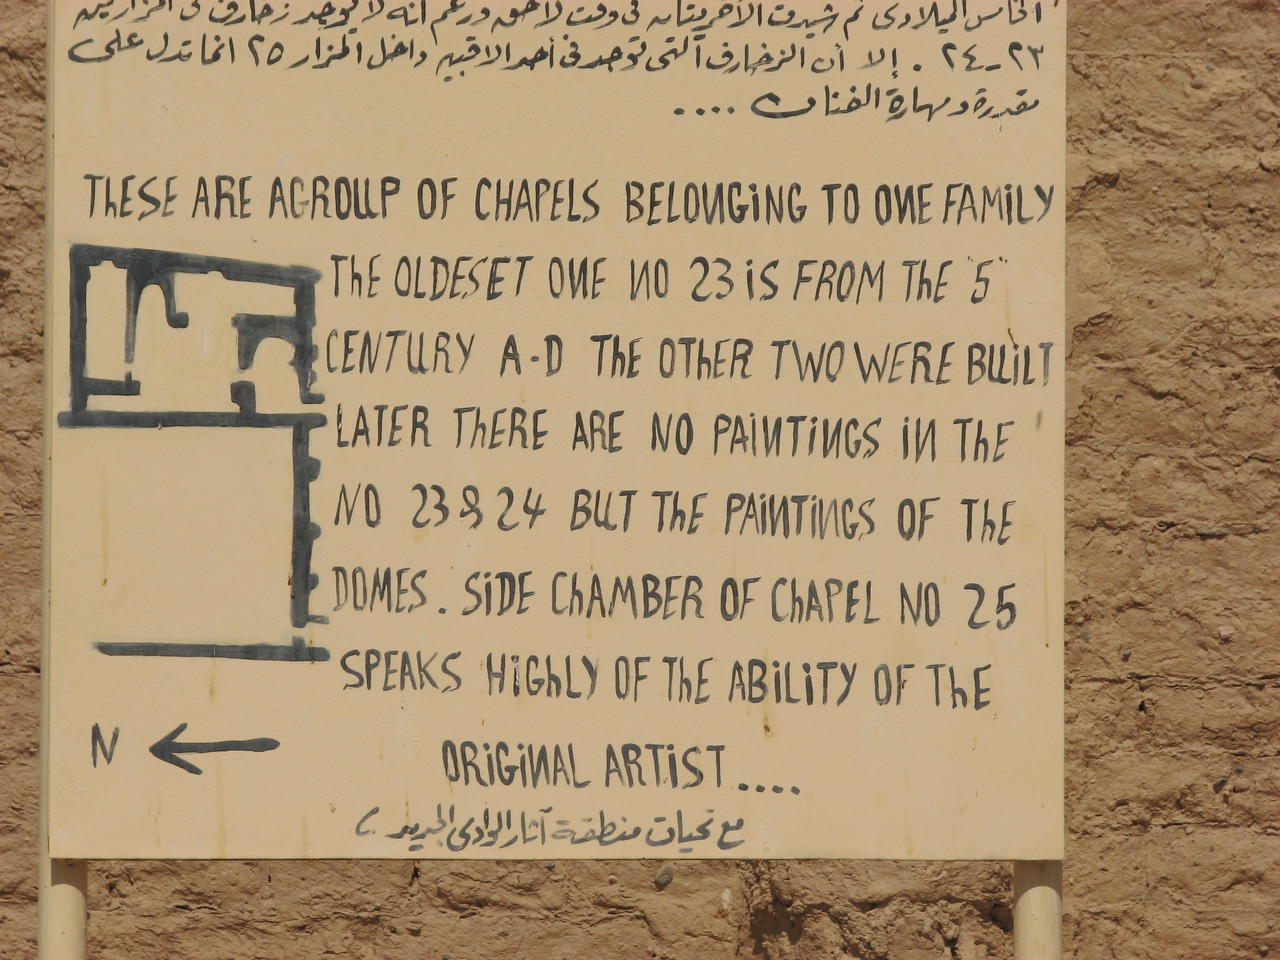 الخامس الميلادى ثم شيدت الأخريتان فى وقت لاحق ورغم أنه لا يوجد زخارف فى المزارين
٢٣-٢٤ . إلا أن الزخارف التى توجد فى أحد الاقبيه داخل المزار ٢٥ انما تدل على
مقدرة ومهارة الفنان ....
THESE ARE AGROUP OF CHAPELS BELONGING TO ONE FAMILY
THE OLDESET ONE NO 23 iS FROM THE "5"
CENTURY A-D THE OTHER TWO WERE BUILT
LATER THERE ARE NO PAINTINGS IN THE
NO 23 & 24 BUT THE PAINTINGS OF THE
DOMES. SIDE CHAMBER OF CHAPEL NO 25
SPEAKS HIGHLY OF THE ABILITY OF THE
ORIGINAL ARTIST ....
N
مع تحيات منطقة آثار الوادى الجديد